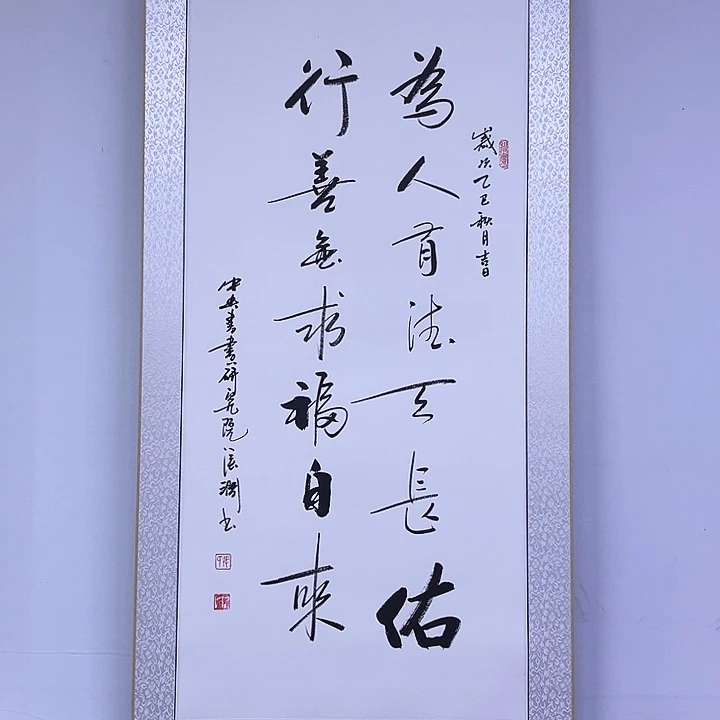 歲次乙巳秋月吉日
為人有德天長佑
行善無求福自來
中央書畫研究院 書